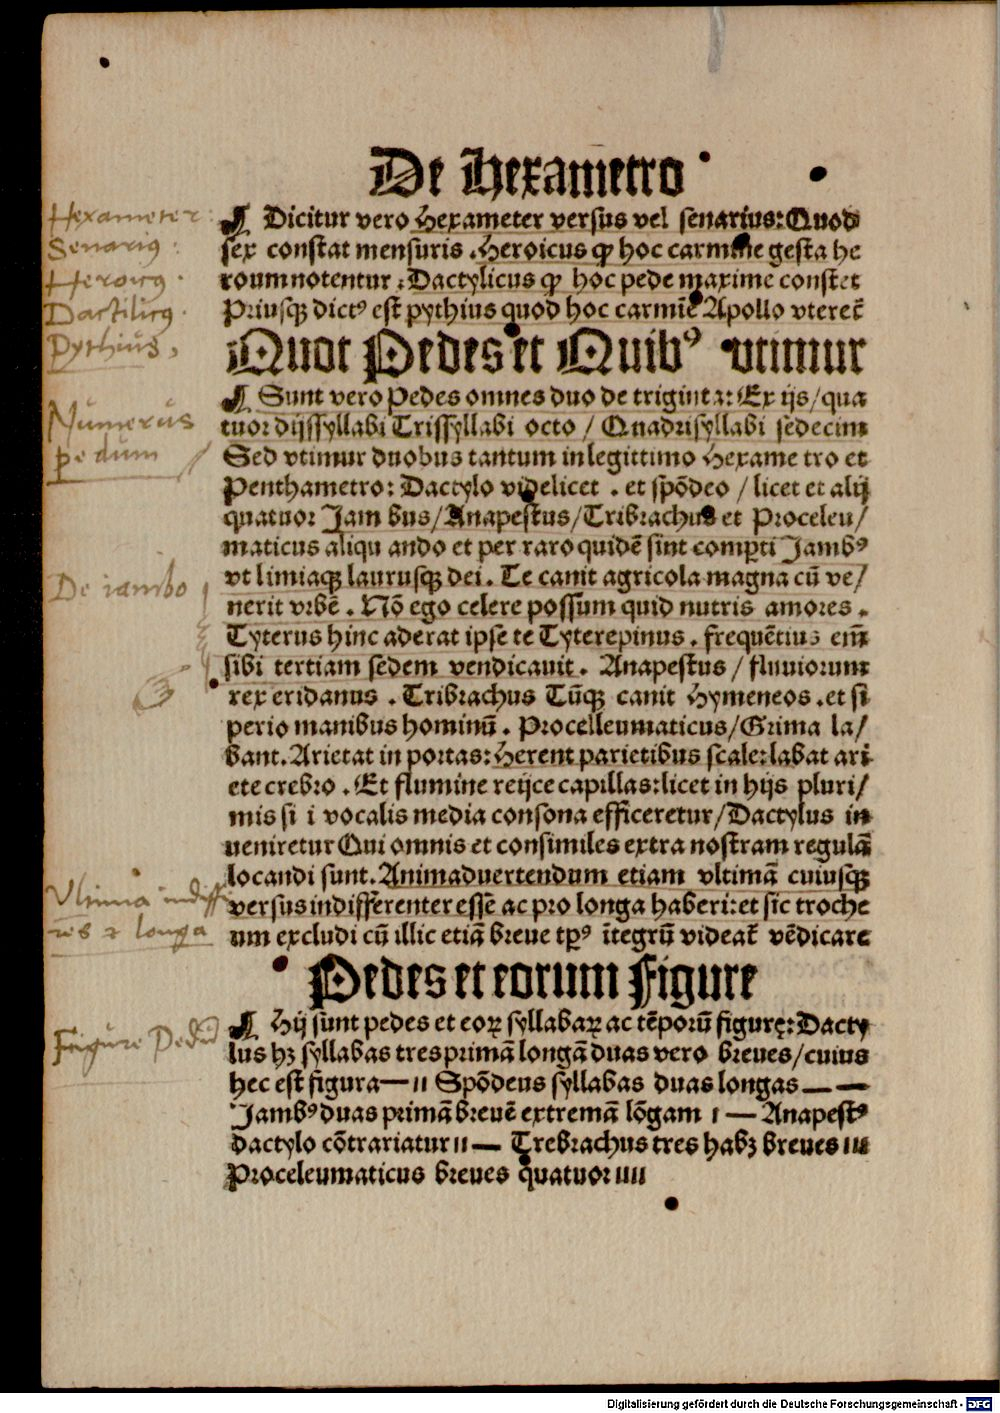 De Hexametro
¶ Dicitur vero Hexameter versus vel senarius: Quod
sex constat mensuris . Heroicus ꝙ hoc carmine gesta he
roum notentur : Dactylicus ꝙ hoc pede maxime constet
Priusqꝫ dictꝰ est pythius quod hoc carmīe Apollo vteret̄
Quot Pedes et Quibꝰ vtimur
¶ Sunt vero Pedes omnes duo de triginta: Ex ijs/qua
tuor dijssyllabi Trissyllabi octo / Quadrisyllabi sedecim
Sed vtimur duobus tantum in legittimo Hexame tro et
Penthametro: Dactylo videlicet . et spōdeo / licet et alij
quatuor Jam bus/Anapestus/Tribrachus et Proceleu/
maticus aliqu ando et per raro quidē sint comꝑti Jambꝰ
vt limiaqꝫ laurusqꝫ dei . Te canit agricola magna cū ve/
nerit vrbē . Nō ego celere possum quid nutris amores .
Tyterus hinc aderat ipse te Tyterepinus . frequētius em̄
sibi tertiam sedem vendicauit . Anapestus / fluuiorum
rex eridanus . Tribrachus Tūqꝫ canit Hymeneos . et si
perio manibus hominū . Procelleumaticus/Grima la/
bant. Arietat in portas: Herent parietibus scale: labat ari
ete crebro . Et flumine reijce capillas: licet in hijs pluri/
mis si i vocalis media consona efficeretur/Dactylus in
ueniretur Qui omnis et consimiles extra nostram regulā
locandi sunt. Animaduertendum etiam vltimā cuiusqꝫ
versus indifferenter esse ac pro longa haberi: et sic troche
um excludi cū illic etiā breue tꝑꝰ ītegrū videat̄ vēdicare
Pedes et eorum Figure
¶ Hij sunt pedes et eoꝝ syllabaꝝ ac tēporū figurę: Dacty
lus hꝫ syllabas tres primā longā duas vero breues/cuius
hec est figura— ıı Spōdeus syllabas duas longas — —
Jambꝰ duas primā breuē extremā lōgam ı — Anapestꝰ
dactylo cōtrariatur ıı — Trebrachus tres habꝫ breues ııı
Proceleumaticus breues quatuor ıııı
Hexameter
Senariꝰ
Heroicꝰ
Dactilicꝰ
Pythius
Numerus
pedum
De iambo
Vltima indiff
res et longa
Figure Pedū
Digitalisierung gefördert durch die Deutsche Forschungsgemeinschaft - DFG